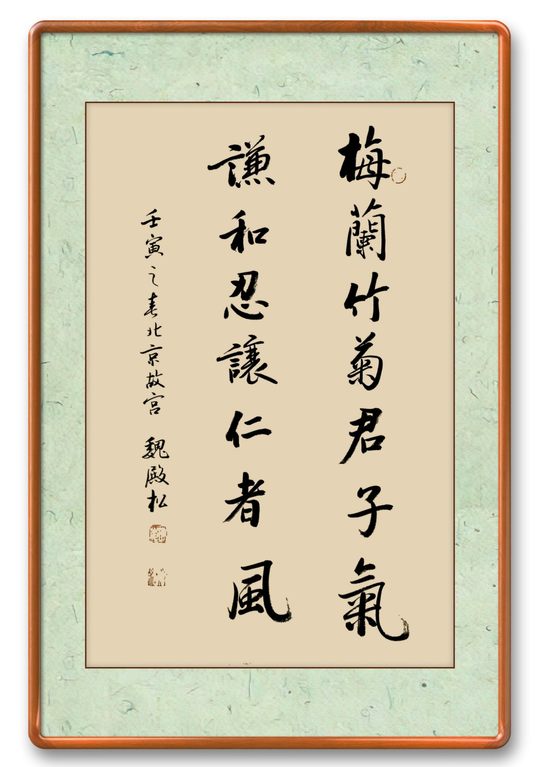 梅蘭竹菊君子氣
謙和忍讓仁者風
壬寅之春北京故宮 魏殿松